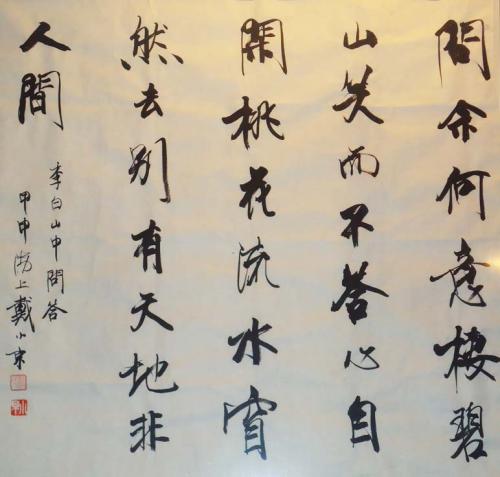 問余何意棲碧
山笑而不答心自
閑桃花流水窅
然去別有天地非
人間
李白山中問答
甲申海上戴小京